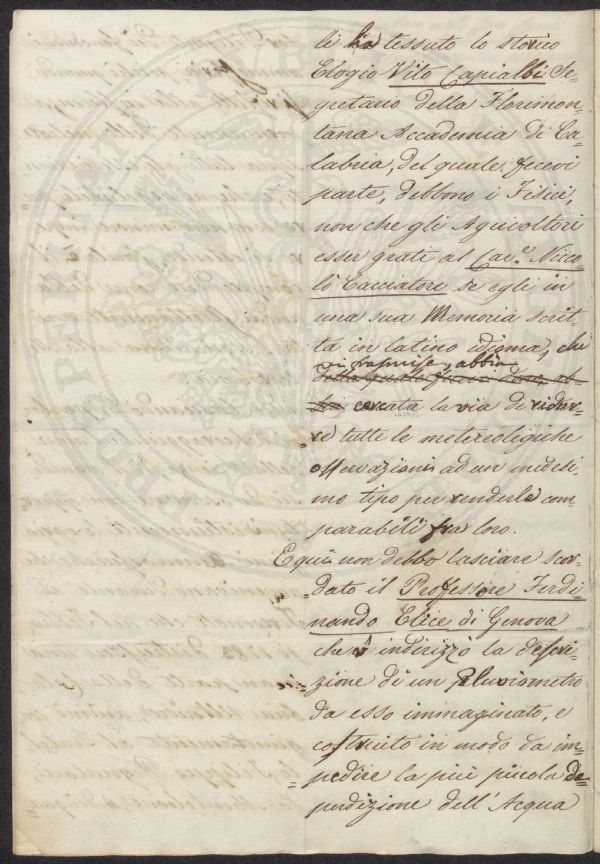 li ha tessuto lo storico
Elogio Vito Capialbi Se=
gretario della Florimon=
tana Accademia di Ca=
labria, del quale fecevi
parte, debbono i Fisici,
non che gli Agricoltori
esser grati al Cav.e Nicco=
lò Cacciatore se egli in
una sua Memoria scrit=
ta in latino idioma, che
vi trasmise, abbia
della quale fecevi dono, ab=
bia cercata la via di ridur=
re tutte le metereoligiche
osservazioni ad un medesi=
mo tipo per renderle com=
parabili fra loro.
E qui non debbo lasciare scor=
dato il Professore Ferdi=
nando Elice di Genova
che indirizzò la descri=
zione di un Pluviometro
da esso immaginato, e
costruito in modo da im=
pedire la più piccola de=
perdizione dell'Acqua